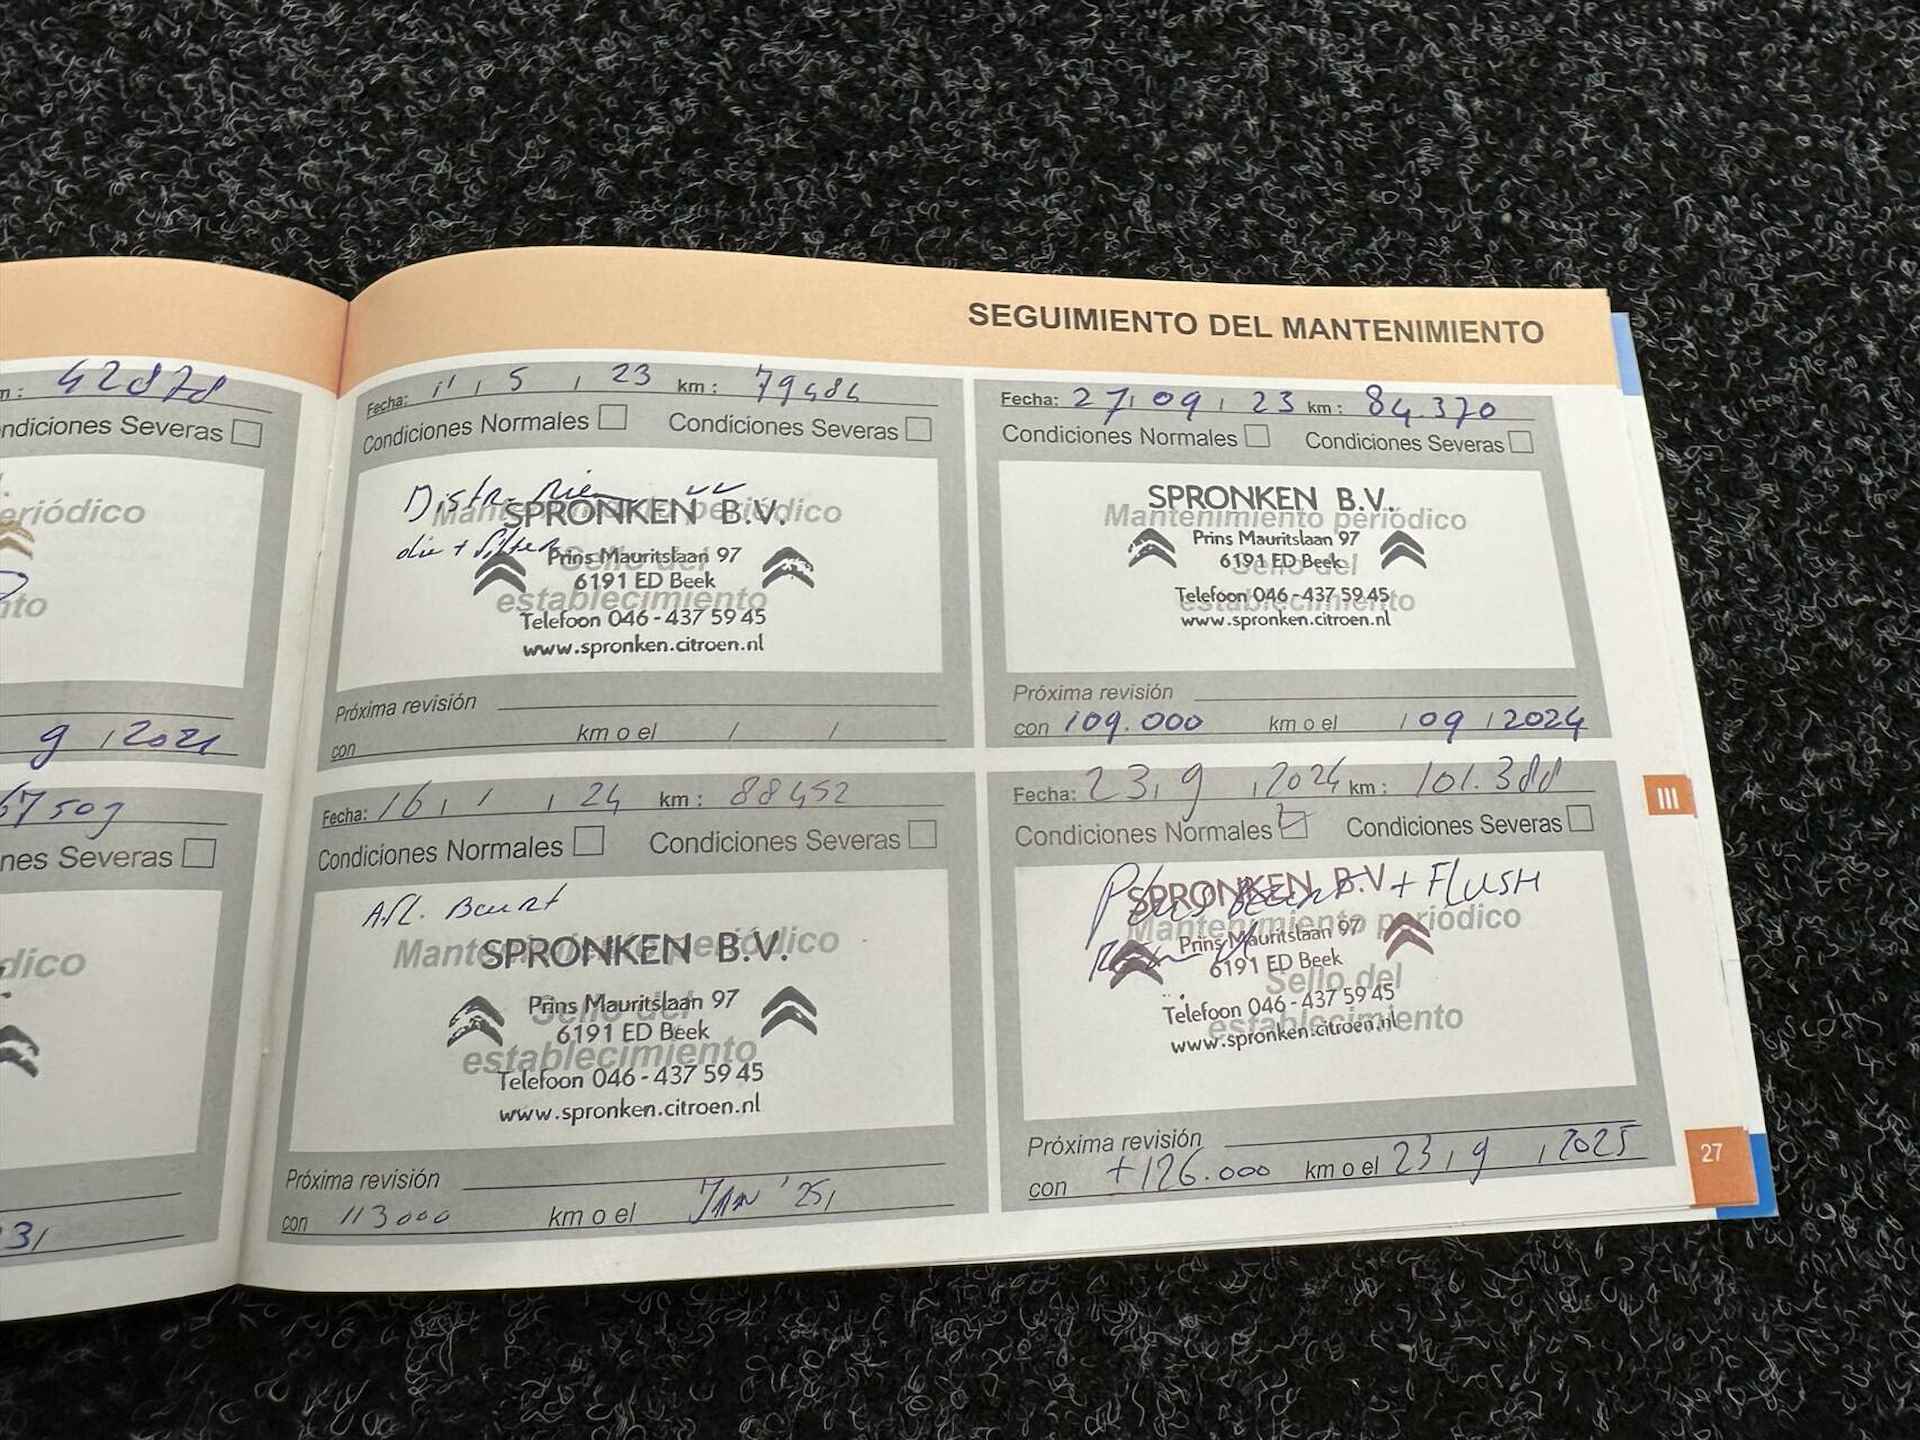 SEGUIMIENTO DEL MANTENIMIENTO
42878
ndiciones Severas
eriódico
nto
9 , 2021
67509
nes Severas
dico
31
Fecha: 11 , 5 , 23 km : 79484
Condiciones Normales Condiciones Severas
Distr. Riem vv
olie + filter
Mantenimiento periódico
SPRONKEN B.V.
Prins Mauritslaan 97
Sello del
6191 ED Beek
establecimiento
Telefoon 046 - 437 59 45
www.spronken.citroen.nl
Próxima revisión
con km o el / /
Fecha: 27 , 09 , 23 km : 84.370
Condiciones Normales Condiciones Severas
SPRONKEN B.V.
Mantenimiento periódico
Prins Mauritslaan 97
6191 ED Beek
Sello del
Telefoon 046 - 437 59 45
establecimiento
www.spronken.citroen.nl
Próxima revisión
con 109.000 km o el / 09 / 2024
Fecha: 16 , 1 , 24 km : 88452
Condiciones Normales Condiciones Severas
Afl. Beurt
Mantenimiento periódico
SPRONKEN B.V.
Prins Mauritslaan 97
Sello del
6191 ED Beek
establecimiento
Telefoon 046 - 437 59 45
www.spronken.citroen.nl
Próxima revisión
con 113000 km o el JAN '25,
Fecha: 23 , 9 , 2024 km : 101.388
Condiciones Normales Condiciones Severas
Plus Beurt + FLUSH
SPRONKEN B.V.
Mantenimiento periódico
Prins Mauritslaan 97
6191 ED Beek
Sello del
Telefoon 046 - 437 59 45
establecimiento
www.spronken.citroen.nl
Próxima revisión
con +126.000 km o el 23 , 9 , 2025
III
27